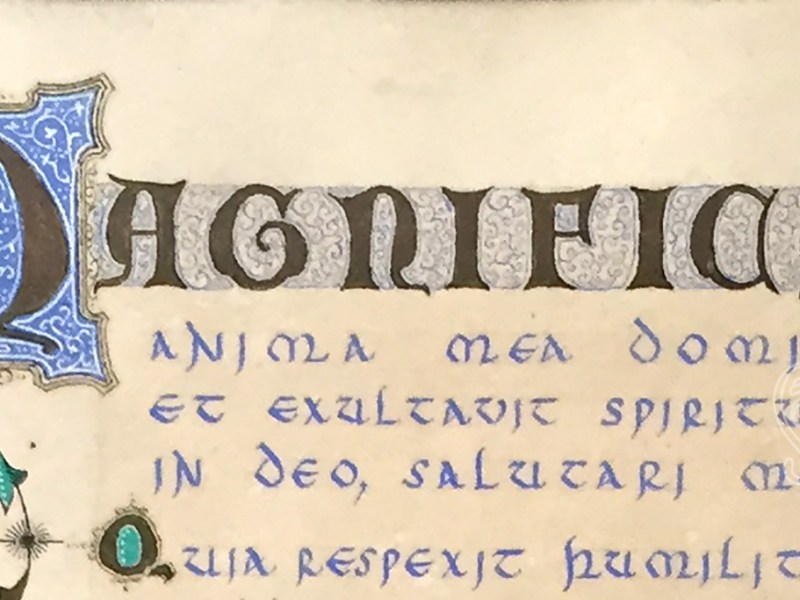 MAGNIFIC
ANIMA MEA DOMI
ET EXULTAVIT SPIRITU
IN DEO, SALUTARI M
QUIA RESPEXIT HUMILIT